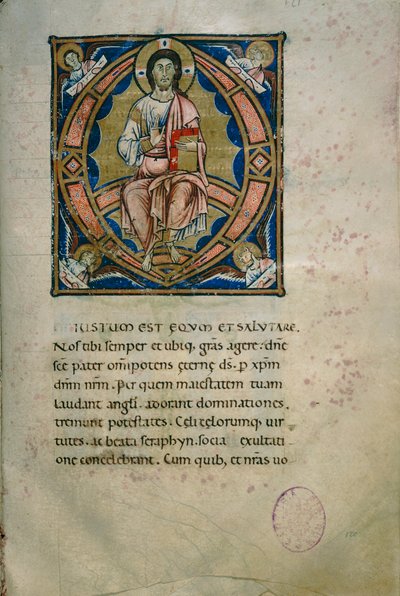 IUSTUM EST EQUM ET SALUTARE.
Nos tibi semper et ubiq, gr̄as agere. dn̄e
sc̄e pater om̄ipotens ęterne ds̄. p xp̄m
dn̄m nr̄m. Per quem maiestatem tuam
laudant angl̄i. adorant dominationes.
tremunt potestates. Celi celorumq, uir
tutes. ac beata seraphyn. socia exultati
one concelebrant. Cum quib, et nr̄as uo